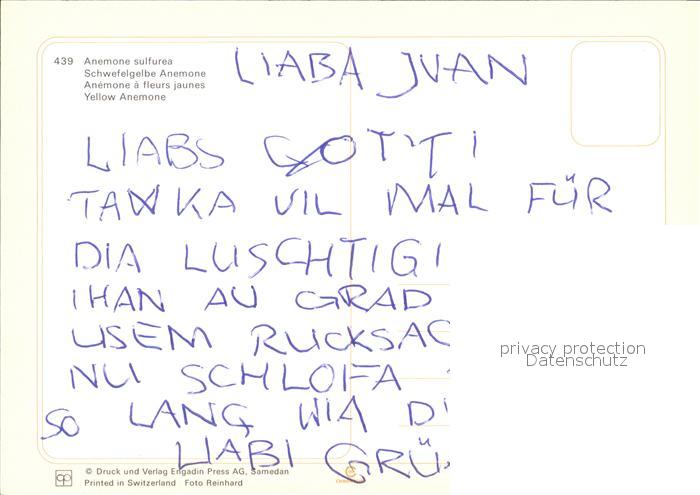 439 Anemone sulfurea
Schwefelgelbe Anemone
Anémone à fleurs jaunes
Yellow Anemone
LIABA JUAN
LIABS GOTTI
TANKA VIL MAL FÜR
DIA LUSCHTIGI
IHAN AU GRAD
USEM RUCKSAC
NU SCHLOFA
SO LANG WIA DI
LIABI GRÜ
privacy protection
Datenschutz
© Druck und Verlag Engadin Press AG, Samedan
Printed in Switzerland Foto Reinhard